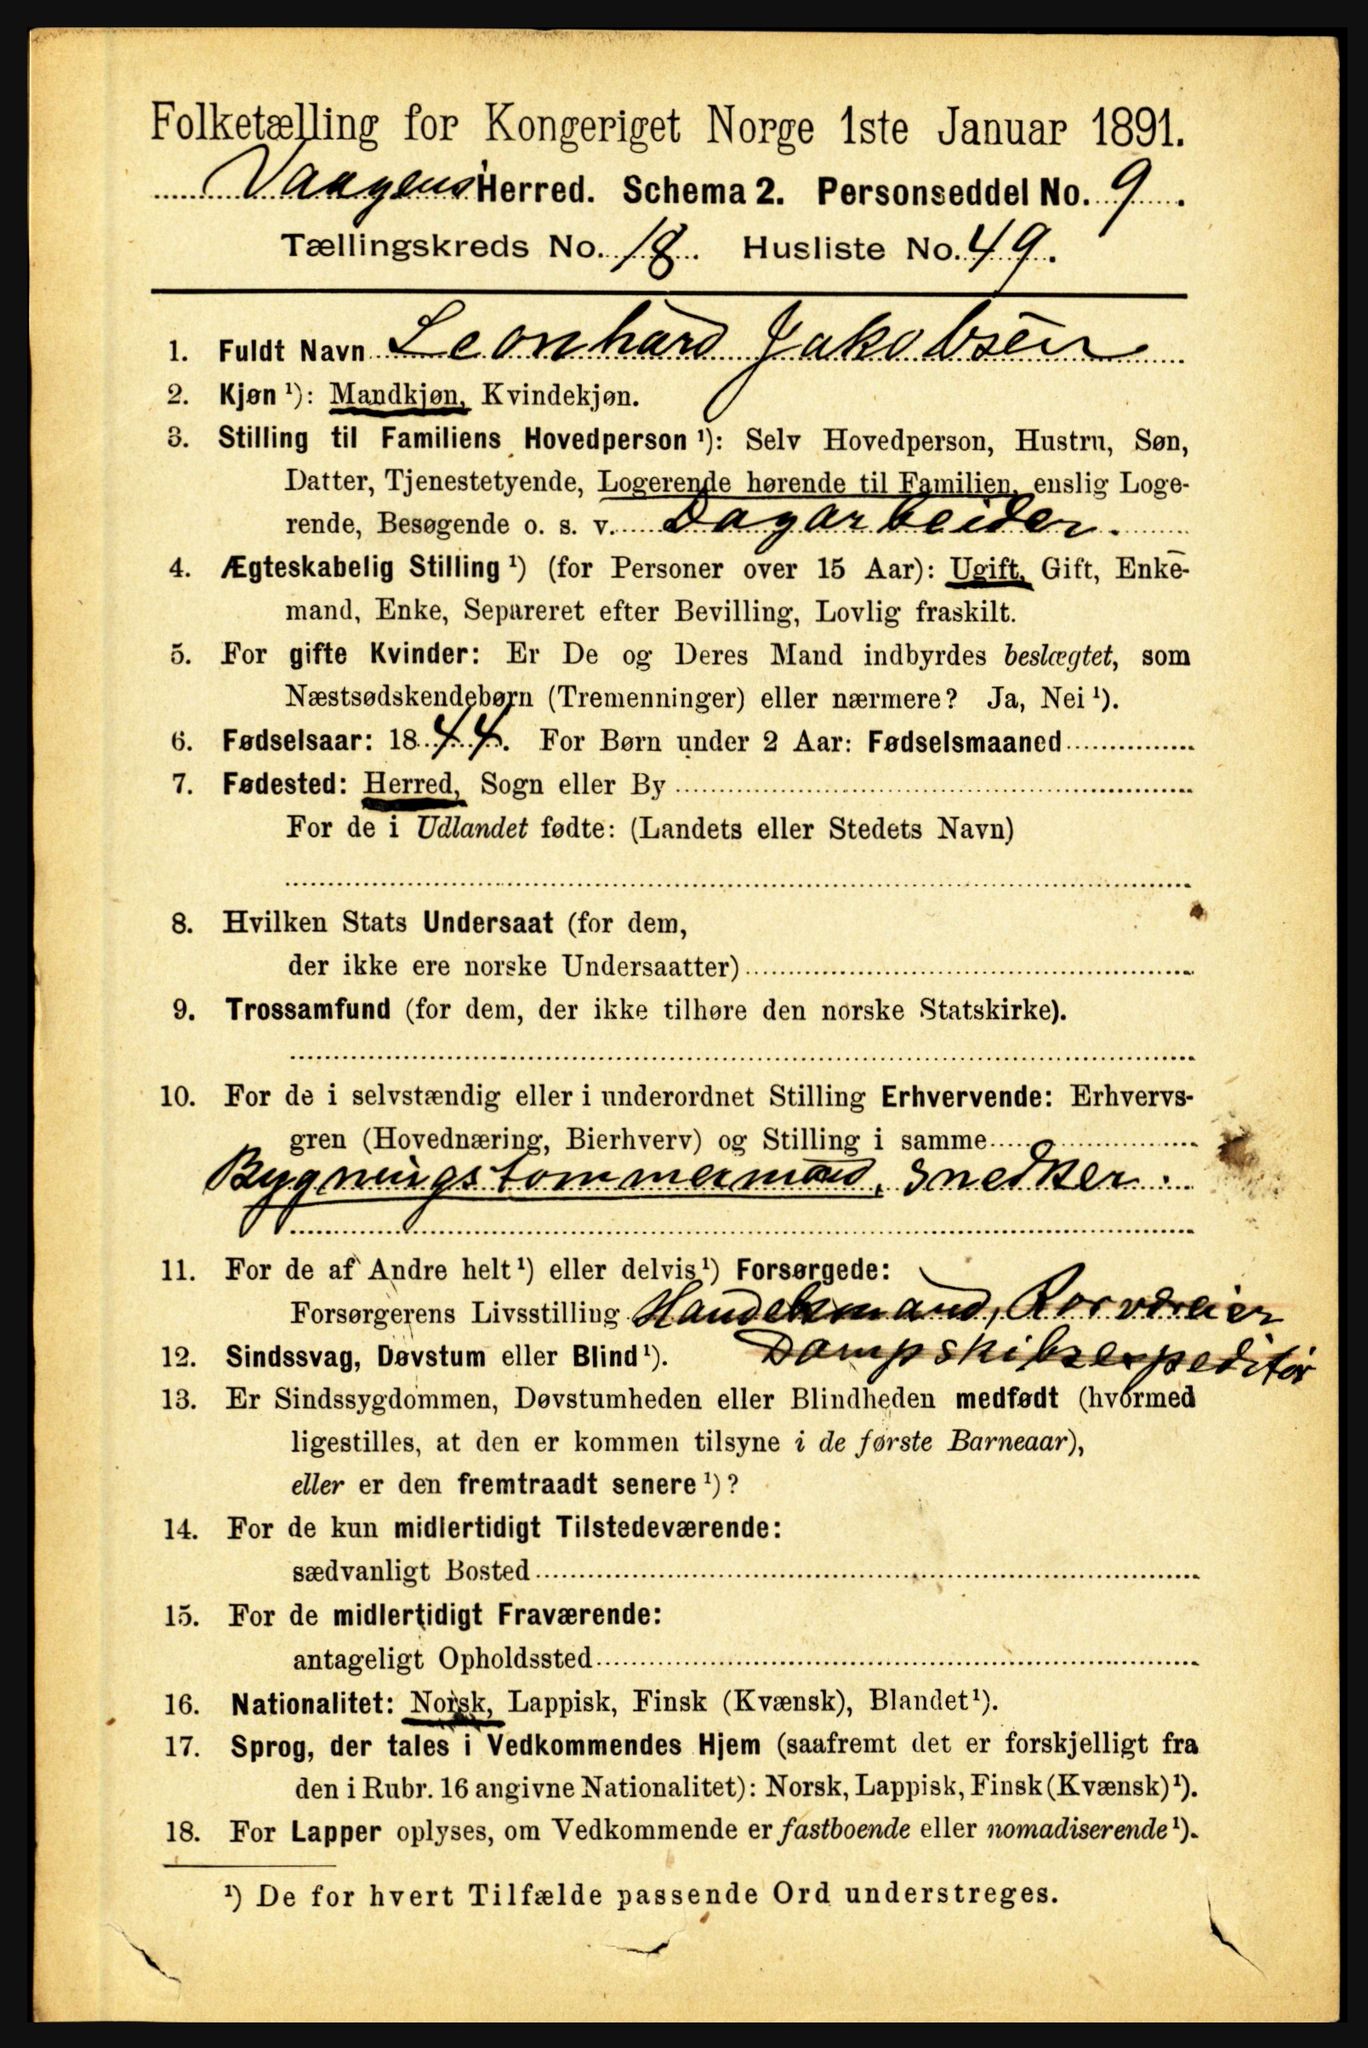 Folketælling for Kongeriget Norge 1ste Januar 1891.
Vaagens Herred. Schema 2. Personseddel No. 9.
Tællingskreds No. 18. Husliste No. 49.
1. Fuldt Navn Leonhard Jakobsen
2. Kjøn ¹): Mandkjøn, Kvindekjøn.
3. Stilling til Familiens Hovedperson ¹): Selv Hovedperson, Hustru, Søn,
Datter, Tjenestetyende, Logerende hørende til Familien, enslig Loge-
rende, Besøgende o. s. v. Dagarbeider.
4. Ægteskabelig Stilling ¹) (for Personer over 15 Aar): Ugift, Gift, Enke-
mand, Enke, Separeret efter Bevilling, Lovlig fraskilt.
5. For gifte Kvinder: Er De og Deres Mand indbyrdes beslægtet, som
Næstsødskendebørn (Tremenninger) eller nærmere? Ja, Nei ¹).
6. Fødselsaar: 1844. For Børn under 2 Aar: Fødselsmaaned
7. Fødested: Herred, Sogn eller By
For de i Udlandet fødte: (Landets eller Stedets Navn)
8. Hvilken Stats Undersaat (for dem,
der ikke ere norske Undersaatter)
9. Trossamfund (for dem, der ikke tilhøre den norske Statskirke).
10. For de i selvstændig eller i underordnet Stilling Erhvervende: Erhvervs-
gren (Hovednæring, Bierhverv) og Stilling i samme
Bygningstommermand, snedker.
11. For de af Andre helt ¹) eller delvis ¹) Forsørgede:
Forsørgerens Livsstilling Handelsmand, Rorværeier
12. Sindssvag, Døvstum eller Blind ¹). Dampskibsexpeditør
13. Er Sindssygdommen, Døvstumheden eller Blindheden medfødt (hvormed
ligestilles, at den er kommen tilsyne i de første Barneaar),
eller er den fremtraadt senere ¹)?
14. For de kun midlertidigt Tilstedeværende:
sædvanligt Bosted
15. For de midlertidigt Fraværende:
antageligt Opholdssted
16. Nationalitet: Norsk, Lappisk, Finsk (Kvænsk), Blandet ¹).
17. Sprog, der tales i Vedkommendes Hjem (saafremt det er forskjelligt fra
den i Rubr. 16 angivne Nationalitet): Norsk, Lappisk, Finsk (Kvænsk) ¹).
18. For Lapper oplyses, om Vedkommende er fastboende eller nomadiserende ¹).
¹) De for hvert Tilfælde passende Ord understreges.